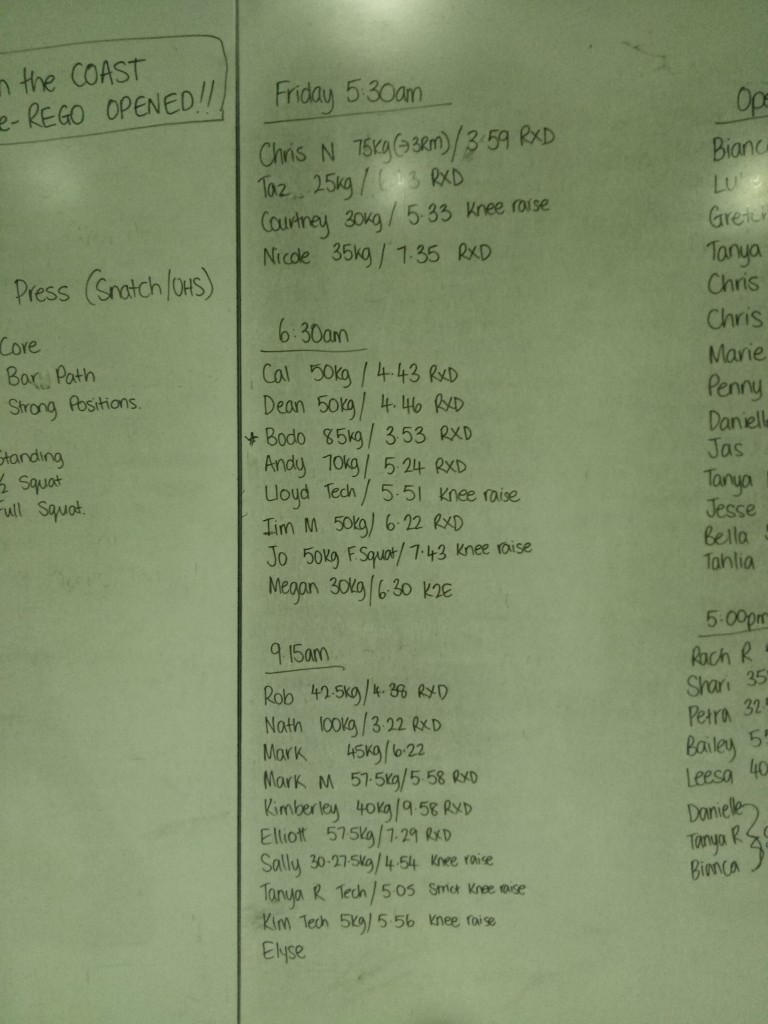 n the COAST
e-REGO OPENED!!
Press (Snatch/OHS)
Core
Bar Path
Strong Positions.
Standing
½ Squat
Full Squat.
Friday 5:30am
Chris N 75kg (→3RM) / 3.59 RXD
Taz 25kg / RXD
Courtney 30kg / 5.33 Knee raise
Nicole 35kg / 7.35 RXD
6:30am
Cal 50kg / 4.43 RXD
Dean 50kg / 4.46 RXD
* Bodo 85kg / 3.53 RXD
Andy 70kg / 5.24 RXD
Lloyd Tech / 5.51 Knee raise
Jim M 50kg / 6.22 RXD
Jo 50kg F.Squat / 7.43 Knee raise
Megan 30kg / 6.30 K2E
9.15am
Rob 42.5kg / 4.38 RXD
Nath 100kg / 3.22 RXD
Mark 45kg / 6.22
Mark M 57.5kg / 5.58 RXD
Kimberley 40kg / 9.58 RXD
Elliott 57.5kg / 7.29 RXD
Sally 30-27.5kg / 4.54 Knee raise
Tanya R Tech / 5.05 Strict Knee raise
Kim Tech 5kg / 5.56 Knee raise
Elyse
Ope
Bianc
Lu
Gretch
Tanya
Chris
Chris
Marie
Penny
Daniell
Jas
Tanya
Jesse
Bella
Tahlia
5:00pm
Rach R
Shari 35
Petra 32.
Bailey 5
Leesa 40
Danielle
Tanya R
Bianca